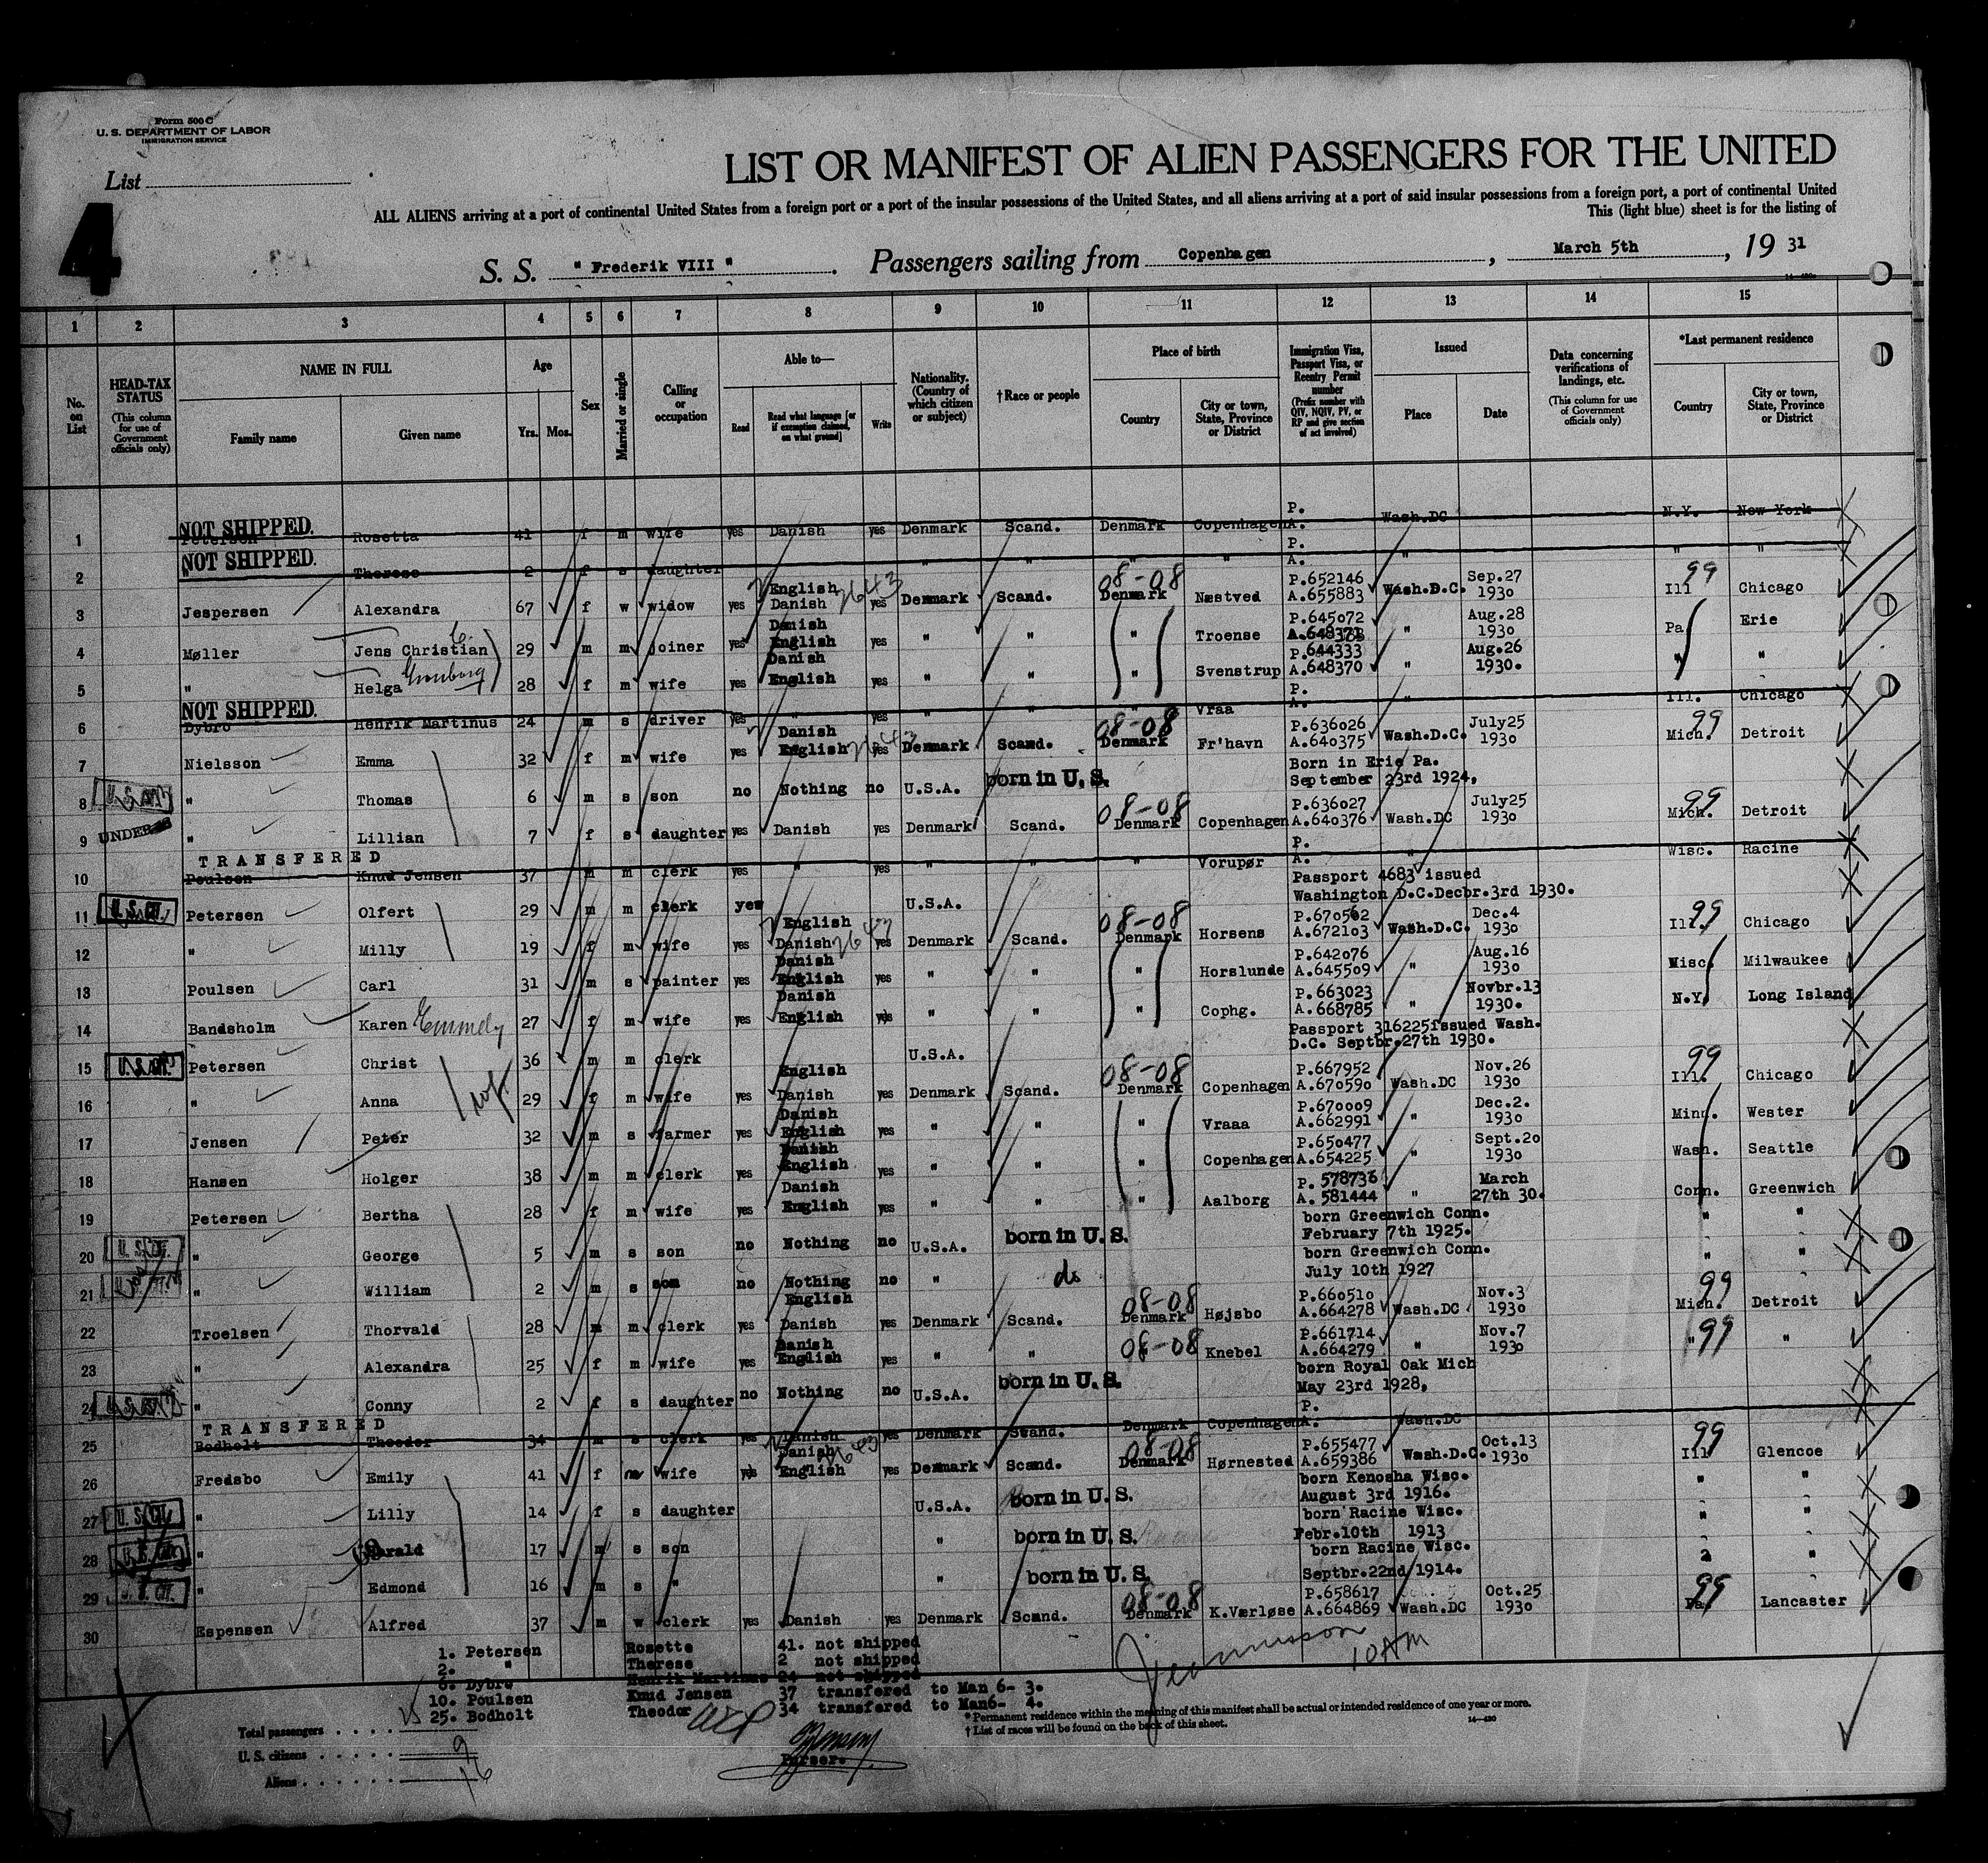 Form 500 C
U. S. DEPARTMENT OF LABOR
IMMIGRATION SERVICE
List
4
LIST OR MANIFEST OF ALIEN PASSENGERS FOR THE UNITED
ALL ALIENS arriving at a port of continental United States from a foreign port or a port of the insular possessions of the United States, and all aliens arriving at a port of said insular possessions from a foreign port, a port of continental United
This (light blue) sheet is for the listing of
S. S. " Frederik VIII " . Passengers sailing from Copenhagen , March 5th , 19 31
1 2 3 4 5 6 7 8 9 10 11 12 13 14 15
No. on List
HEAD-TAX STATUS (This column for use of Government officials only)
NAME IN FULL Family name Given name
Age Yrs. Mos.
Sex
Married or single
Calling or occupation
Able to— Read Read what language [or if exemption claimed, on what ground] Write
Nationality. (Country of which citizen or subject)
† Race or people
Place of birth Country City or town, State, Province or District
Immigration Visa, Passport Visa, or Reentry Permit number (Prefix number with QIV, NQIV, PV, or RP and give section of act involved)
Issued Place Date
Data concerning verifications of landings, etc. (This column for use of Government officials only)
*Last permanent residence Country City or town, State, Province or District
NOT SHIPPED.
1 Petersen Rosetta 41 f m wife yes Danish yes Denmark Scand. Denmark Copenhagen P. A. Wash.DC N.Y. New York
NOT SHIPPED.
2 " Therese 2 f s daughter " " " " P. A. " " "
3 Jespersen Alexandra 67 f w widow yes English Danish yes Denmark Scand. 08-08 Denmark Næstved P.652146 A.655883 Wash.D.C. Sep.27 1930 99 Ill Chicago
4 Møller Jens Christian 29 m m joiner yes Danish English yes " " " Troense P.645072 A.648371 " Aug.28 1930 Pa Erie
5 " Helga 28 f m wife yes Danish English yes " " " Svenstrup P.644333 A.648370 " Aug.26 1930. " "
NOT SHIPPED.
6 Dybro Henrik Martinus 24 m s driver yes " yes " " " Vraa P. A. " Ill. Chicago
7 Nielsson Emma 32 f m wife yes Danish English yes Denmark Scand. 08-08 Denmark Fr'havn P.636026 A.640375 Wash.D.C. July25 1930 99 Mich. Detroit
8 U. S. Cit. " Thomas 6 m s son no Nothing no U.S.A. born in U. S. Born in Erie Pa. September 23rd 1924,
9 UNDER 16 " Lillian 7 f s daughter yes Danish yes Denmark Scand. 08-08 Denmark Copenhagen P.636027 A.640376 Wash.DC July25 1930 99 Mich. Detroit
TRANSFERED
10 Poulsen Knud Jensen 37 m m clerk yes " yes " " " Vorupør P. A. " Wisc. Racine
11 U. S. CIT. Petersen Olfert 29 m m clerk yes U.S.A. Passport 4683 issued Washington D.C.Decbr.3rd 1930.
12 " Milly 19 f m wife yes English Danish yes Denmark Scand. 08-08 Denmark Horsens P.670562 A.672103 Wash.D.C. Dec.4 1930 99 Ill. Chicago
13 Poulsen Carl 31 m s painter yes Danish English yes " " " Horslunde P.642076 A.645509 " Aug.16 1930 Wisc. Milwaukee
14 Bandsholm Karen Emmely 27 f m wife yes Danish English yes " " " Cophg. P.663023 A.668785 " Novbr.13 1930. N.Y. Long Island
15 U. S. CIT. Petersen Christ 36 m m clerk U.S.A. Passport 316225issued Wash. D.C. Septbr.27th 1930.
16 " Anna 29 f m wife yes English Danish yes Denmark Scand. 08-08 Denmark Copenhagen P.667952 A.670590 Wash.DC Nov.26 1930 99 Ill. Chicago
17 Jensen Peter 32 m s farmer yes Danish English yes " " " Vraaa P.670009 A.662991 " Dec.2. 1930 Minn. Wester
18 Hansen Holger 38 m m clerk yes Danish English yes " " " Copenhagen P.650477 A.654225 " Sept.20 1930 Wash. Seattle
19 Petersen Bertha 28 f m wife yes Danish English yes " " " Aalborg P. 578736 A. 581444 " March 27th 30. Conn. Greenwich
20 U. S. CIT. " George 5 m s son no Nothing no U.S.A. born in U. S. born Greenwich Conn. February 7th 1925. " "
21 " William 2 m s son no Nothing no " do born Greenwich Conn. July 10th 1927 " "
22 Troelsen Thorvald 28 m m clerk yes English Danish yes Denmark Scand. 08-08 Denmark Højsbo P.660510 A.664278 Wash.DC Nov.3 1930 99 Mich. Detroit
23 " Alexandra 25 f m wife yes Danish English yes " " 08-08 Knebel P.661714 A.664279 " Nov.7 1930 " 99 "
24 U. S. CIT. " Conny 2 f s daughter no Nothing no U.S.A. born in U. S. born Royal Oak Mich May 23rd 1928,
TRANSFERED
25 Bodholt Theodor 34 m s clerk yes Danish yes Denmark Scand. Denmark Copenhagen P. A. Wash.DC
26 Fredsbo Emily 41 f m wife yes Danish English yes Denmark Scand. 08-08 Denmark Hørnested P.655477 A.659386 Wash.D.C. Oct.13 1930 99 Ill Glencoe
27 U. S. CIT. " Lilly 14 f s daughter U.S.A. born in U. S. born Kenosha Wisc. August 3rd 1916. " "
28 U. S. Cit. " Harald 17 m s son " born in U. S. born Racine Wisc. Febr.10th 1913 " "
29 U. S. CIT. " Edmond 16 m s " " born in U. S. born Racine Wisc. Septbr.22nd 1914. "
30 Espensen Alfred 37 m w clerk yes Danish yes Denmark Scand. 08-08 Denmark K.Værløse P.658617 A.664869 Wash.DC Oct.25 1930 99 Pa. Lancaster
1. Petersen Rosette 41. not shipped
2. " Therese 2 not shipped
6. Dybro Henrik Martinus 24 not shipped
10. Poulsen Knud Jensen 37 transfered to Man 6- 3.
25. Bodholt Theodor 34 transfered to Man6- 4.
10 AM
* Permanent residence within the meaning of this manifest shall be actual or intended residence of one year or more.
† List of races will be found on the back of this sheet.
14—430
Total passengers . . . . . 25
U. S. citizens . . . . . 9
Aliens . . . . . . 16
Purser.